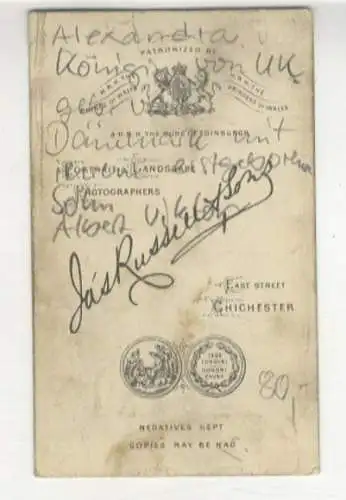 Alexandra
PATRONIZED BY
Königin von UK
H.R.H. THE PRINCE OF WALES
H.R.H. THE PRINCESS OF WALES
geb. v.
Dänemark mit
& H.R.H. THE DUKE OF EDINBURGH
PORTRAIT & LANDSCAPE
PHOTOGRAPHERS
Sohn
Albert
Jas Russell & Sons
EAST STREET
CHICHESTER
80,-
NEGATIVES KEPT
COPIES MAY BE HAD